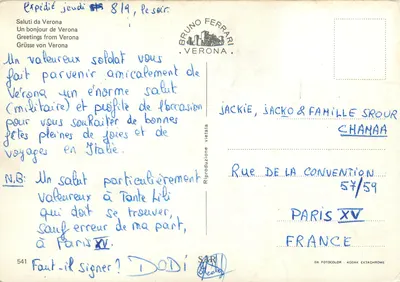 Expédié jeudi 8/9, le soir.
Saluti da Verona
Un bonjour de Verona
Greetings from Verona
Grüsse von Verona
BRUNO FERRARI
- VERONA -
Un valeureux soldat vous
fait parvenir amicalement de
Verona un énorme salut
(militaire) et profite de l'occasion
pour vous souhaiter de bonnes
fêtes pleines de joies et de
voyages en Italie.
N.B: Un salut particulièrement
valeureux à Tante Lili
qui doit se trouver,
sauf erreur de ma part,
à Paris XV.
Faut-il signer? DODI
Riproduzione vietata
JACKIE, JACKO & FAMILLE SROUR
CHAMAA
RUE DE LA CONVENTION
57/59
PARIS XV
FRANCE
541